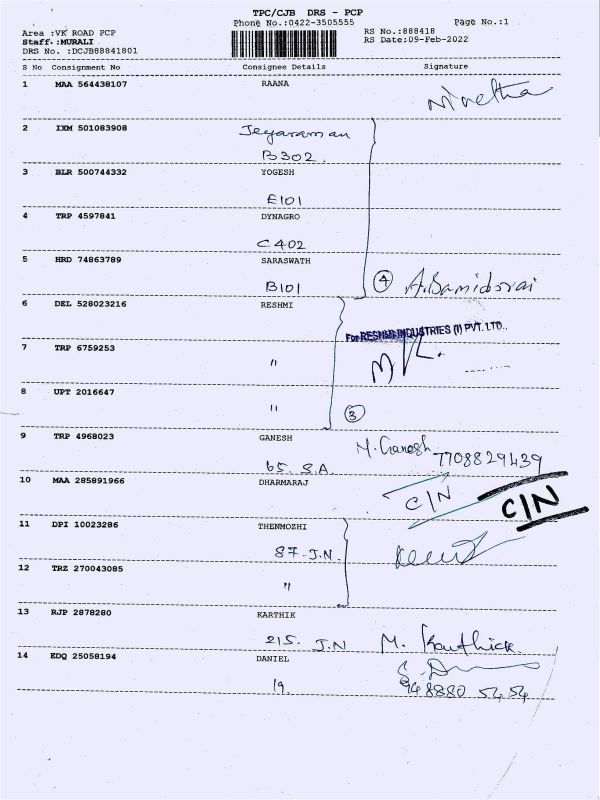 TPC/CJB DRS - PCP
Phone No.:0422-3505555 Page No.:1
Area :VK ROAD PCP RS No.:888418
Staff :MURALI RS Date:09-Feb-2022
DRS No. :DCJB88841801
S No Consignment No Consignee Details Signature
1 MAA 564438107 RAANA
Nivetha
2 IXM 501083908 Jeyaraman
B302.
3 BLR 500744332 YOGESH
E101
4 TRP 4597841 DYNAGRO
C402
5 HRD 74863789 SARASWATH
B101 4 A.Samidorai
6 DEL 528023216 RESHMI
For RESHMI INDUSTRIES (I) PVT. LTD..
7 TRP 6759253
"
8 UPT 2016647
" 3
9 TRP 4968023 GANESH M. Ganesh
65. S.A. 7708829439
10 MAA 285891966 DHARMARAJ C/N C/N
11 DPI 10023286 THENMOZHI
87. J.N.
12 TRZ 270043085
"
13 RJP 2878280 KARTHIK
215. J.N M. Karthick.
14 EDQ 25058194 DANIEL
19. 948880 5454